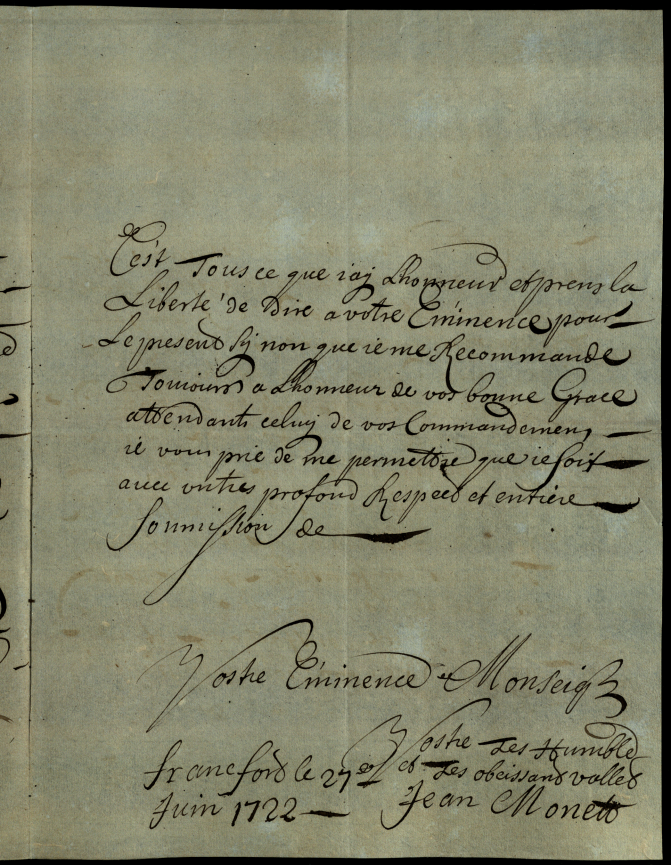 C'est Tous ce que iaj Lhonneur et prens la
Liberté de Dire a votre Eminence pour
Le present sij non que ie me Recommande
Toujours a Lhonneur de vos bonne Grace
attendant celuj de vos Commandemen,
ie vous prie de me permettre que ie soit
avec un tres profond Respect et entiere
Soumission de
Vostre Eminence Monseigr
Vostre tres Humble
et tres obeissand valled
francford le 27en
Juin 1722
Jean Monett